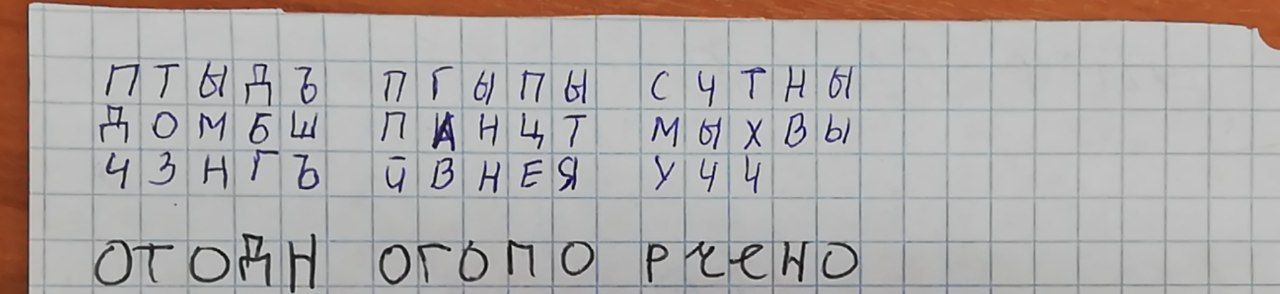 ПТЫДЪ ПГЫПЫ СЧТНЫ
ДОМБШ ПАНЦТ МЫХВЫ
ЧЗНГЪ ЙВНЕЯ УЧЧ
ОТОДН ОГОПО РЧЕНО